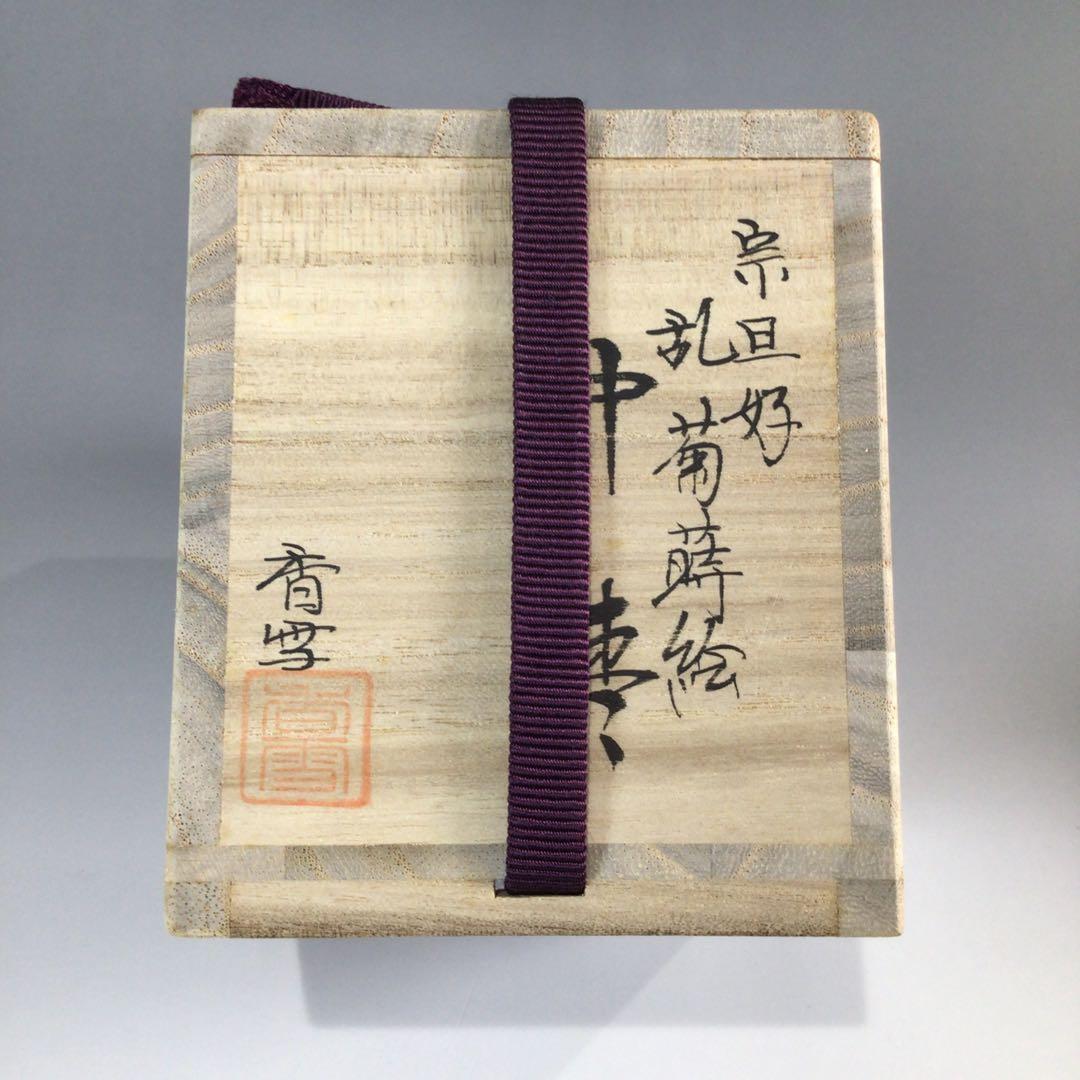 宗旦好
乱菊蒔絵
中棗
香雪